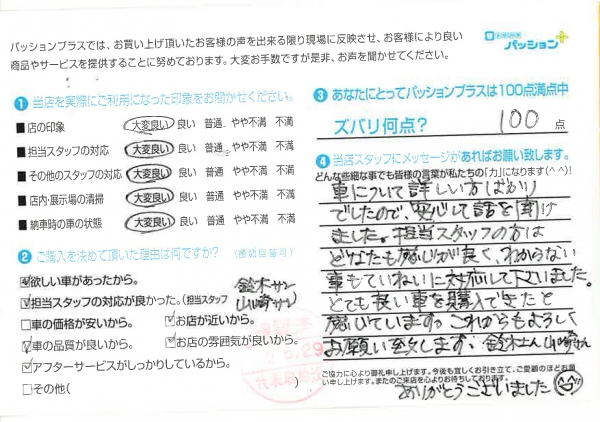 パッションプラスでは、お買い上げ頂いたお客様の声を出来る限り現場に反映させ、お客様により良い
商品やサービスを提供することに努めております。大変お手数ですが是非、お声を聞かせてください。
パッション+
1 当店を実際にご利用になった印象をお聞かせください。
■店の印象 大変良い 良い 普通 やや不満 不満
■担当スタッフの対応 大変良い 良い 普通 やや不満 不満
■その他のスタッフの対応 大変良い 良い 普通 やや不満 不満
■店内・展示場の清掃 大変良い 良い 普通 やや不満 不満
■納車時の車の状態 大変良い 良い 普通 やや不満 不満
2 ご購入を決めて頂いた理由は何ですか? (複数回答可)
欲しい車があったから。 鈴木サン
担当スタッフの対応が良かった。(担当スタッフ 山崎サン)
□車の価格が安いから。 お店が近いから。
車の品質が良いから。 お店の雰囲気が良いから。
アフターサービスがしっかりしているから。
□その他( )
3 あなたにとってパッションプラスは100点満点中
ズバリ何点? 100 点
4 当店スタッフにメッセージがあればお願い致します。
どんな些細な事でも皆様の言葉が私たちの「力」になります(^^)!
車について詳しい方ばかり
でしたので、安心して話を聞け
ました。担当スタッフの方は
どなたも感じが良く、わからない
事もていねいに対応して下さいました。
とても良い車を購入できたと
感じています。これからもよろしく
お願い致します。鈴木さん 山崎さん
ご協力に心より御礼申し上げます。今後も宜しくお引き立て、ご愛顧のほどお願
い申し上げます。またのご来店を心よりお待ちしております。
ありがとうございました